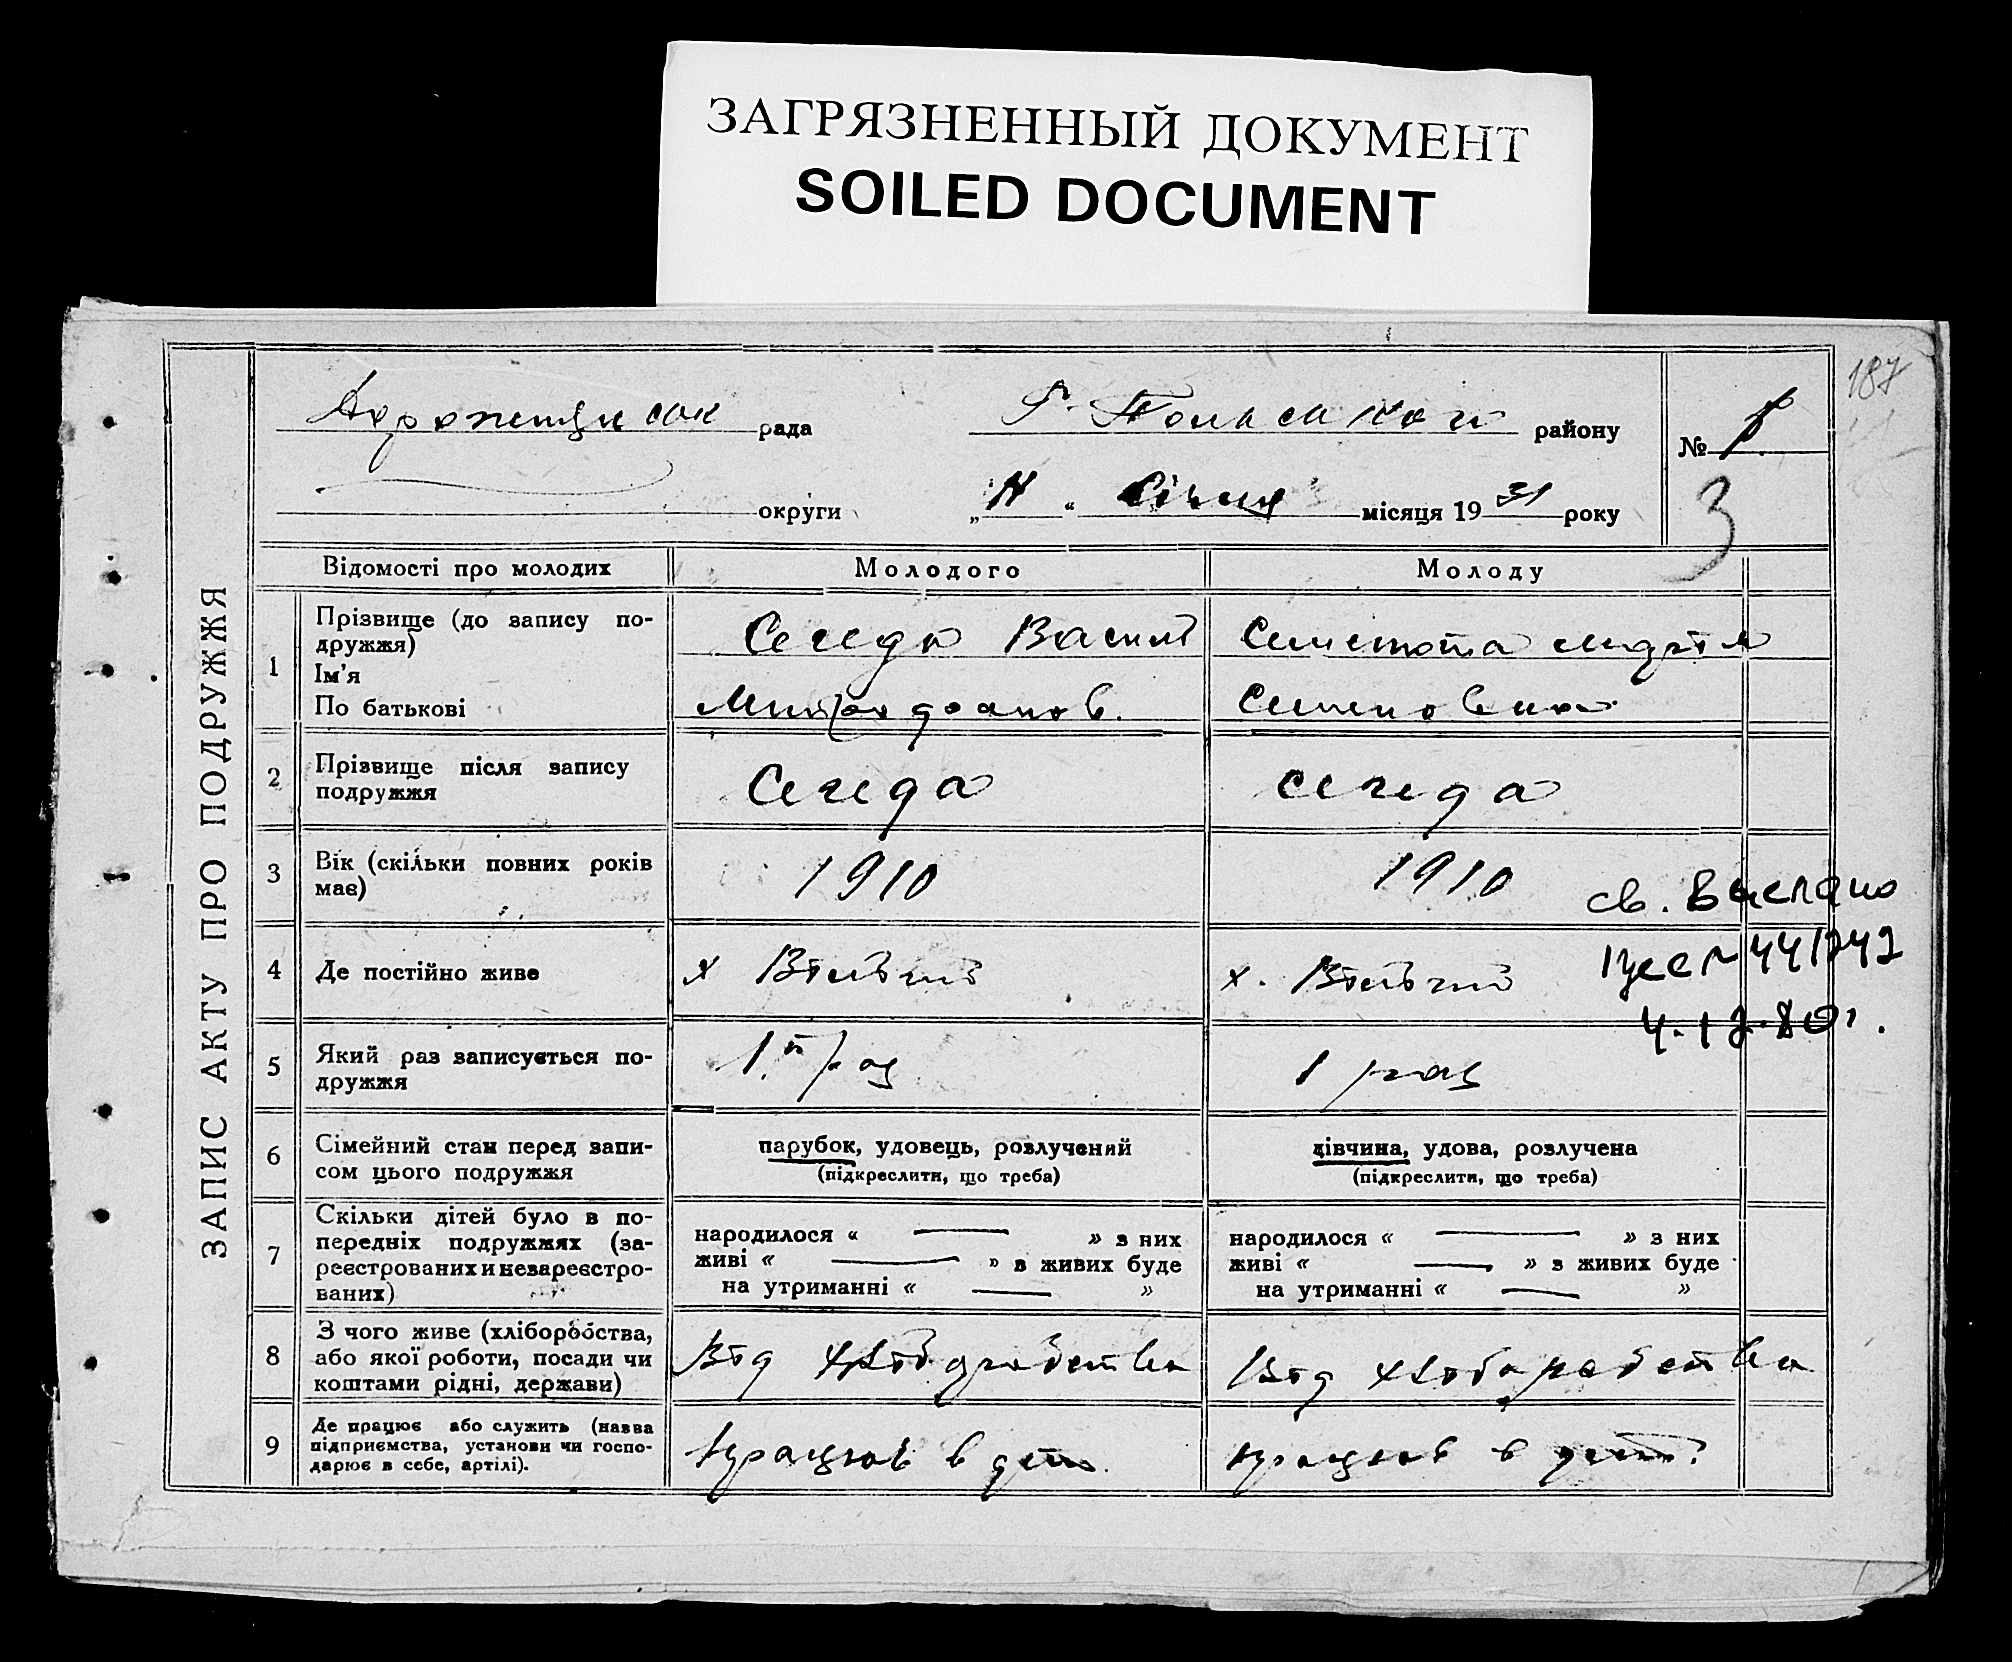 ЗАГРЯЗНЕННЫЙ ДОКУМЕНТ
SOILED DOCUMENT
187
ЗАПИС АКТУ ПРО ПОДРУЖЖЯ
рада
району
№
округи
„ “ Січня місяця 1931 року
3
Відомості про молодих
Молодого
Молоду
1
Прізвище (до запису по-
дружжя)
Ім'я
По батькові
Сегеда Василь
Семеновна
2
Прізвище після запису
подружжя
Сегеда
Сегеда
3
Вік (скільки повних років
має)
1910
1910
св. Выслано
4.12.80г.
4
Де постійно живе
х Вільний
х. Вільний
5
Який раз записується по-
дружжя
1й раз
1 раз
6
Сімейний стан перед запи-
сом цього подружжя
парубок, удовець, розлучений
(підкреслити, що треба)
дівчина, удова, розлучена
(підкреслити, що треба)
7
Скільки дітей було в по-
передніх подружжях (за-
реєстрованих и незареєстро-
ваних)
народилося « — » з них
живі « — » в живих буде
на утриманні « — »
народилося « — » з них
живі « — » з живих буде
на утриманні « — »
8
З чого живе (хліборобства,
або якої роботи, посади чи
коштами рідні, держави)
Від хліборобства
Від хліборобства
9
Де працює або служить (назва
підприємства, установи чи госпо-
дарює в себе, артілі).
працює в
працює в